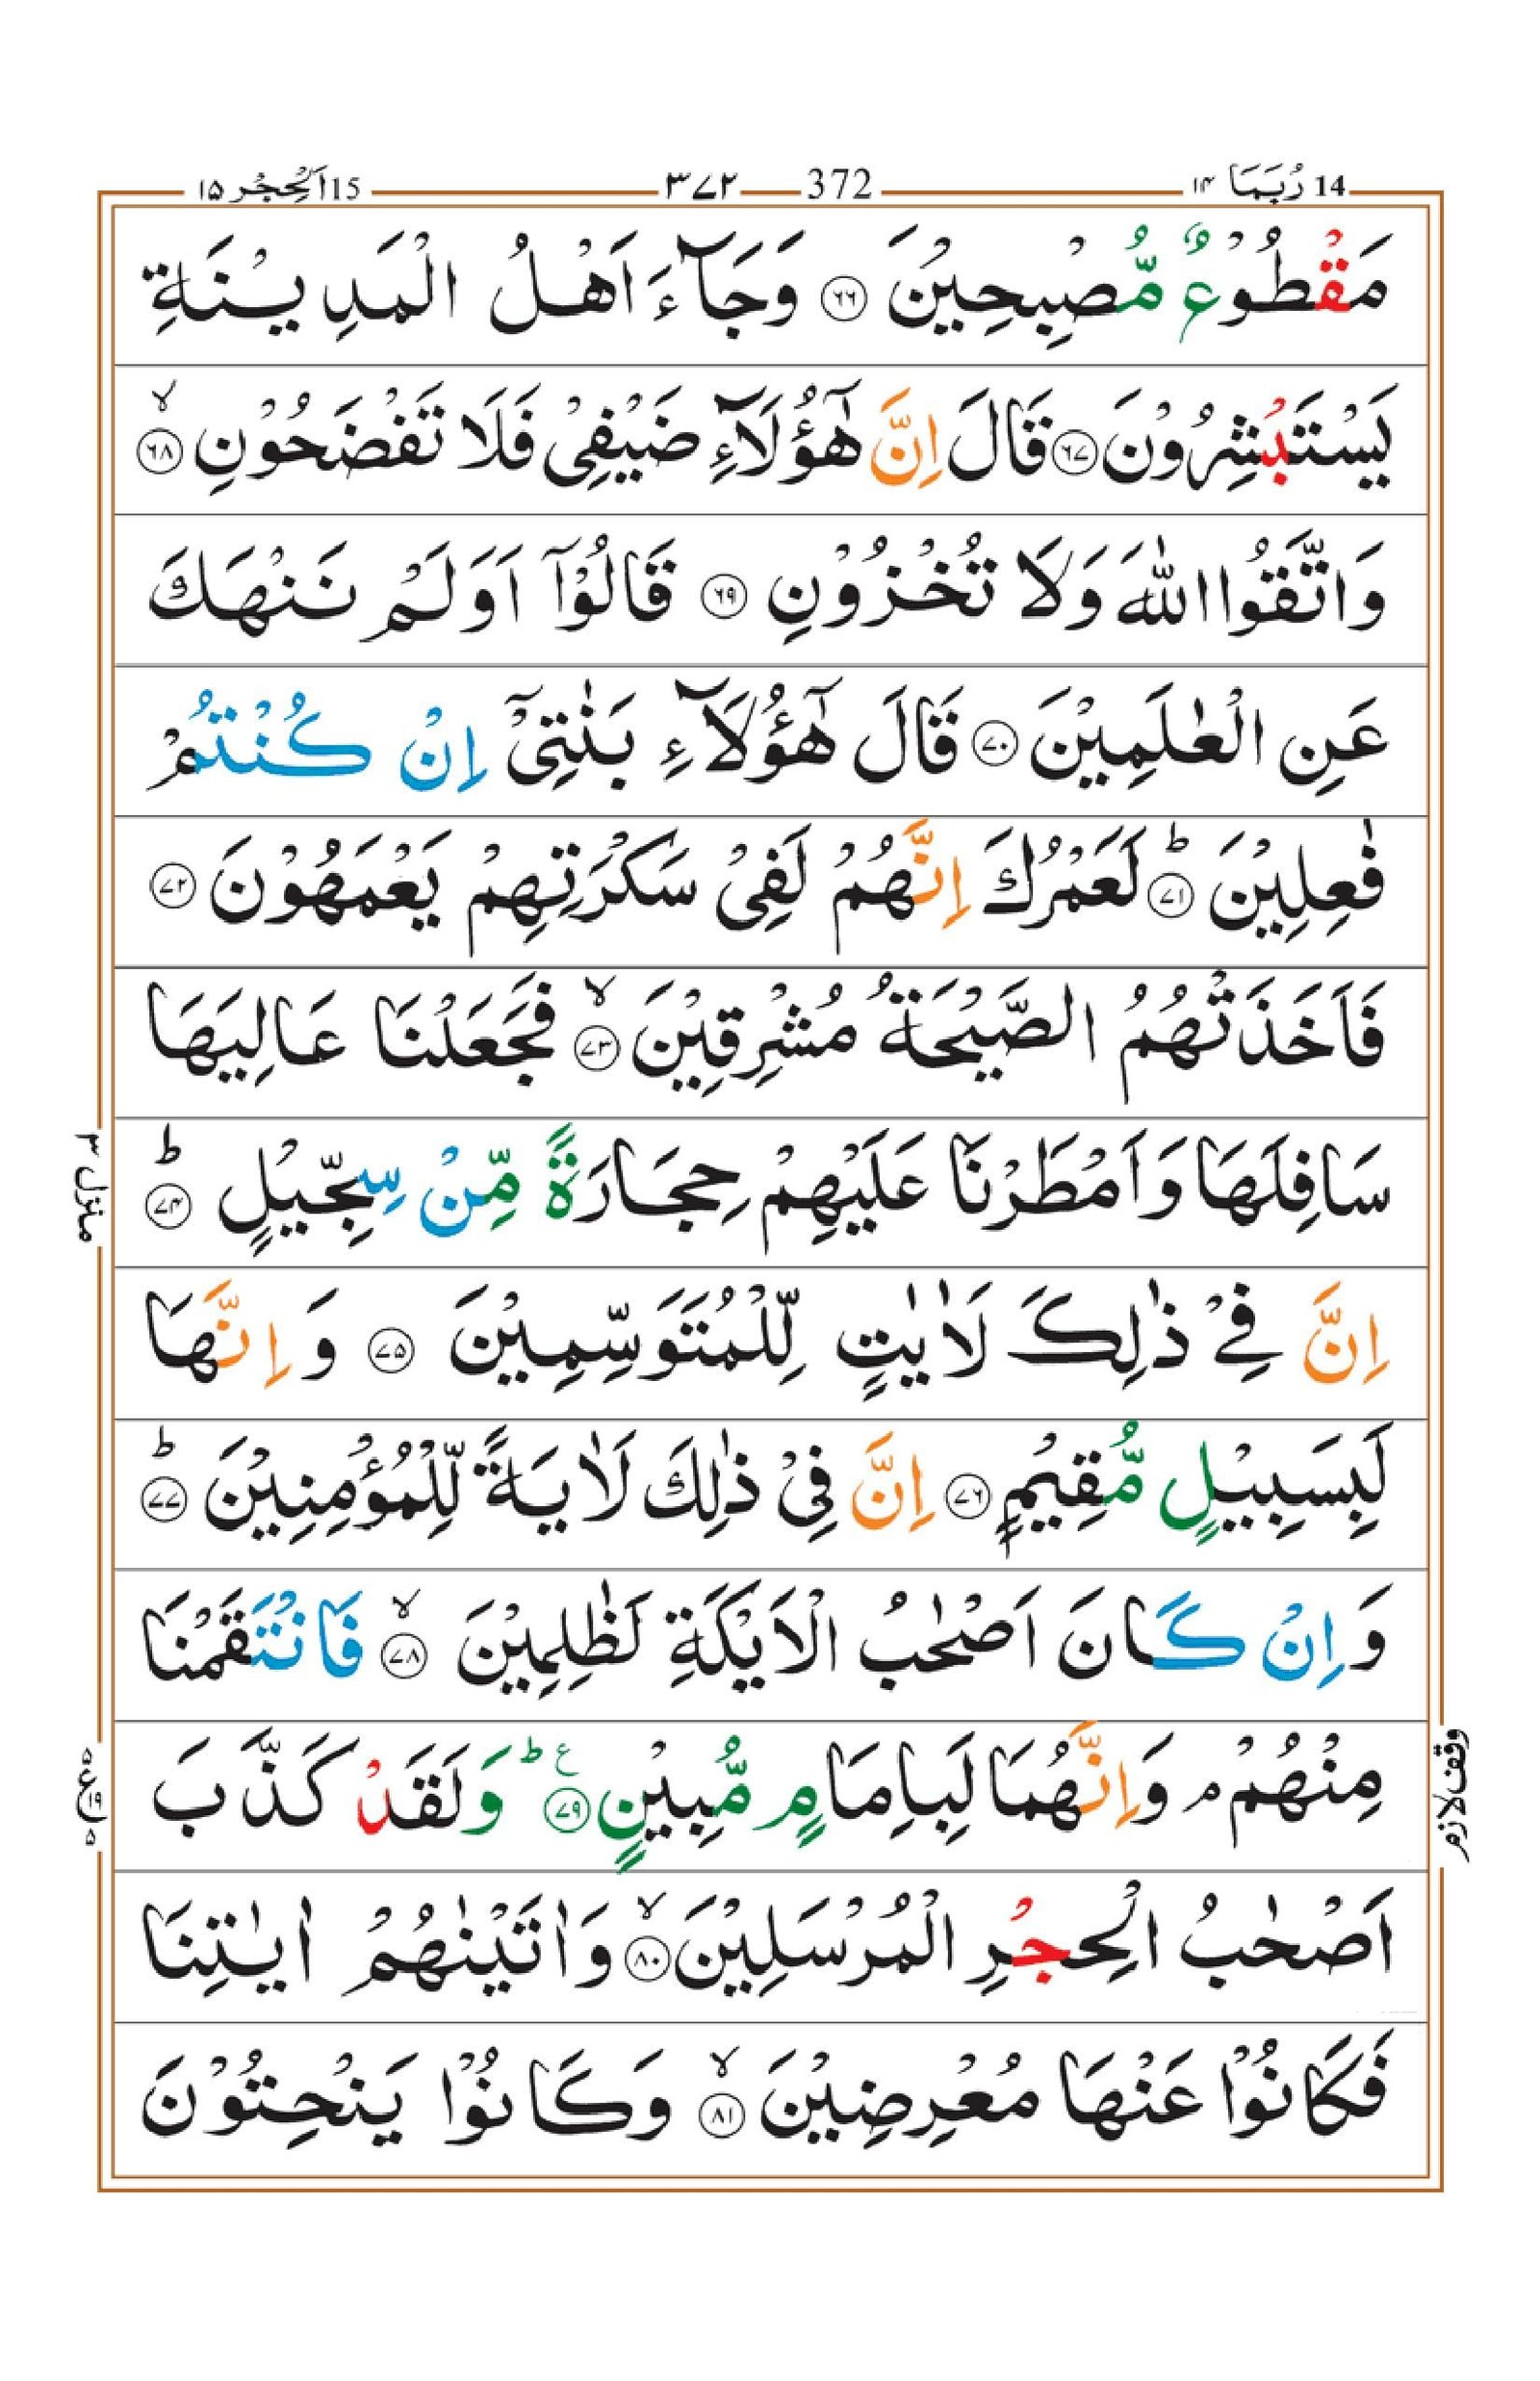 14 رُبَمَا ۱۴
372 ۳۷۲
15 اَلْحِجْر ۱۵
مَقْطُوْعٌ مُّصْبِحِيْنَ ۶۶ وَجَآءَ اَهْلُ الْمَدِيْنَةِ
يَسْتَبْشِرُوْنَ ۶۷ قَالَ اِنَّ هٰٓؤُلَآءِ ضَيْفِيْ فَلَا تَفْضَحُوْنِ ۙ ۶۸
وَاتَّقُوا اللّٰهَ وَلَا تُخْزُوْنِ ۶۹ قَالُوْٓا اَوَلَمْ نَنْهَكَ
عَنِ الْعٰلَمِيْنَ ۷۰ قَالَ هٰٓؤُلَآءِ بَنٰتِيْٓ اِنْ كُنْتُمْ
فٰعِلِيْنَ ؕ ۷۱ لَعَمْرُكَ اِنَّهُمْ لَفِيْ سَكْرَتِهِمْ يَعْمَهُوْنَ ۷۲
فَاَخَذَتْهُمُ الصَّيْحَةُ مُشْرِقِيْنَ ۙ ۷۳ فَجَعَلْنَا عَالِيَهَا
سَافِلَهَا وَاَمْطَرْنَا عَلَيْهِمْ حِجَارَةً مِّنْ سِجِّيْلٍ ؕ ۷۴
اِنَّ فِيْ ذٰلِكَ لَاٰيٰتٍ لِّلْمُتَوَسِّمِيْنَ ۷۵ وَاِنَّهَا
لَبِسَبِيْلٍ مُّقِيْمٍ ۷۶ اِنَّ فِيْ ذٰلِكَ لَاٰيَةً لِّلْمُؤْمِنِيْنَ ؕ ۷۷
وَاِنْ كَانَ اَصْحٰبُ الْاَيْكَةِ لَظٰلِمِيْنَ ۙ ۷۸ فَانْتَقَمْنَا
مِنْهُمْ ۘ وَاِنَّهُمَا لَبِاِمَامٍ مُّبِيْنٍ ؕ ۷۹ ع وَلَقَدْ كَذَّبَ
اَصْحٰبُ الْحِجْرِ الْمُرْسَلِيْنَ ۙ ۸۰ وَاٰتَيْنٰهُمْ اٰيٰتِنَا
فَكَانُوْا عَنْهَا مُعْرِضِيْنَ ۙ ۸۱ وَكَانُوْا يَنْحِتُوْنَ
منزل ۳
۵ ع ۱۹ ۵
وقف لازم